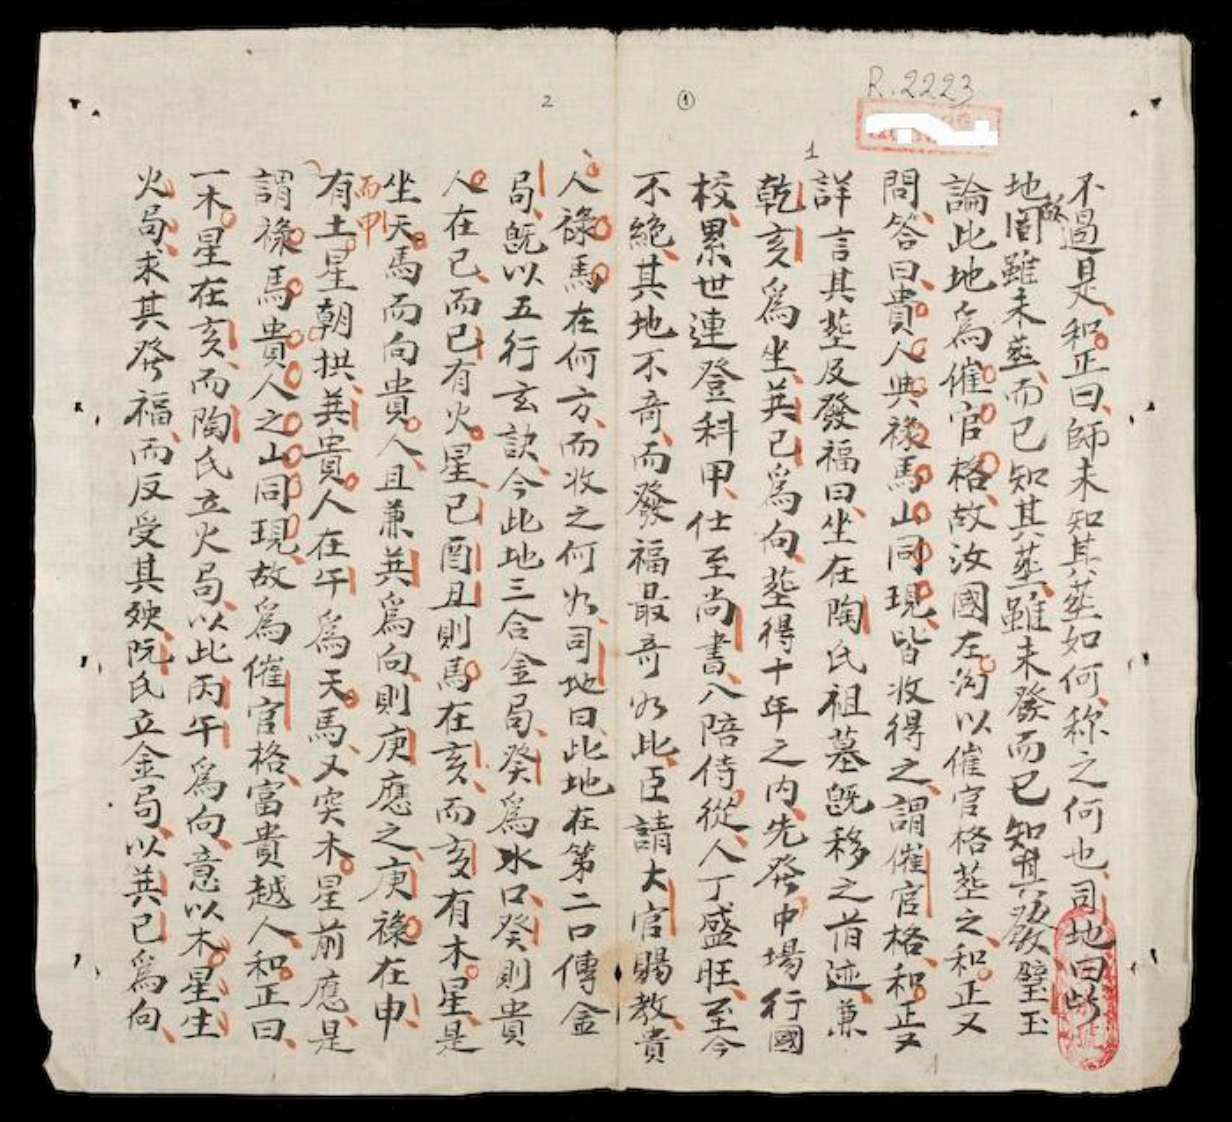 R.2223
①
2
1
不過是和正曰師未知其塟如何称之何也司地曰此
地圖雖未塟而已知其塟雖未發而已知其發璧玉
論此地爲催官格故汝國左沟以催官格塟之和正又
問答曰貴人與祿馬山同現皆收得之謂催官格和正又
詳言其塟及發福曰坐在陶氏祖墓旣移之有迹兼
乾亥爲坐巽已爲向塟得十年之内先發中場行國
校累世連登科甲仕至尚書八陪侍從人丁盛旺至今
不絶其地不奇而發福最奇如此臣請大官賜教貴
人祿馬在何方而收之何如司地曰此地在第二口傳金
局旣以五行玄訣今此地三合金局癸爲水口癸則貴
人在已而已有火星已酉丑則馬在亥而亥有木星是
坐天馬而向貴人且兼巽爲向則庚應之庚祿在申
而甲
有土星朝拱巽貴人在午爲天馬又突木星前應是
謂祿馬貴人之山同現故爲催官格富貴越人和正曰
一木星在亥而陶氏立火局以此丙午爲向意以木星生
火局求其發福而反受其殃阮氏立金局以巽已爲向